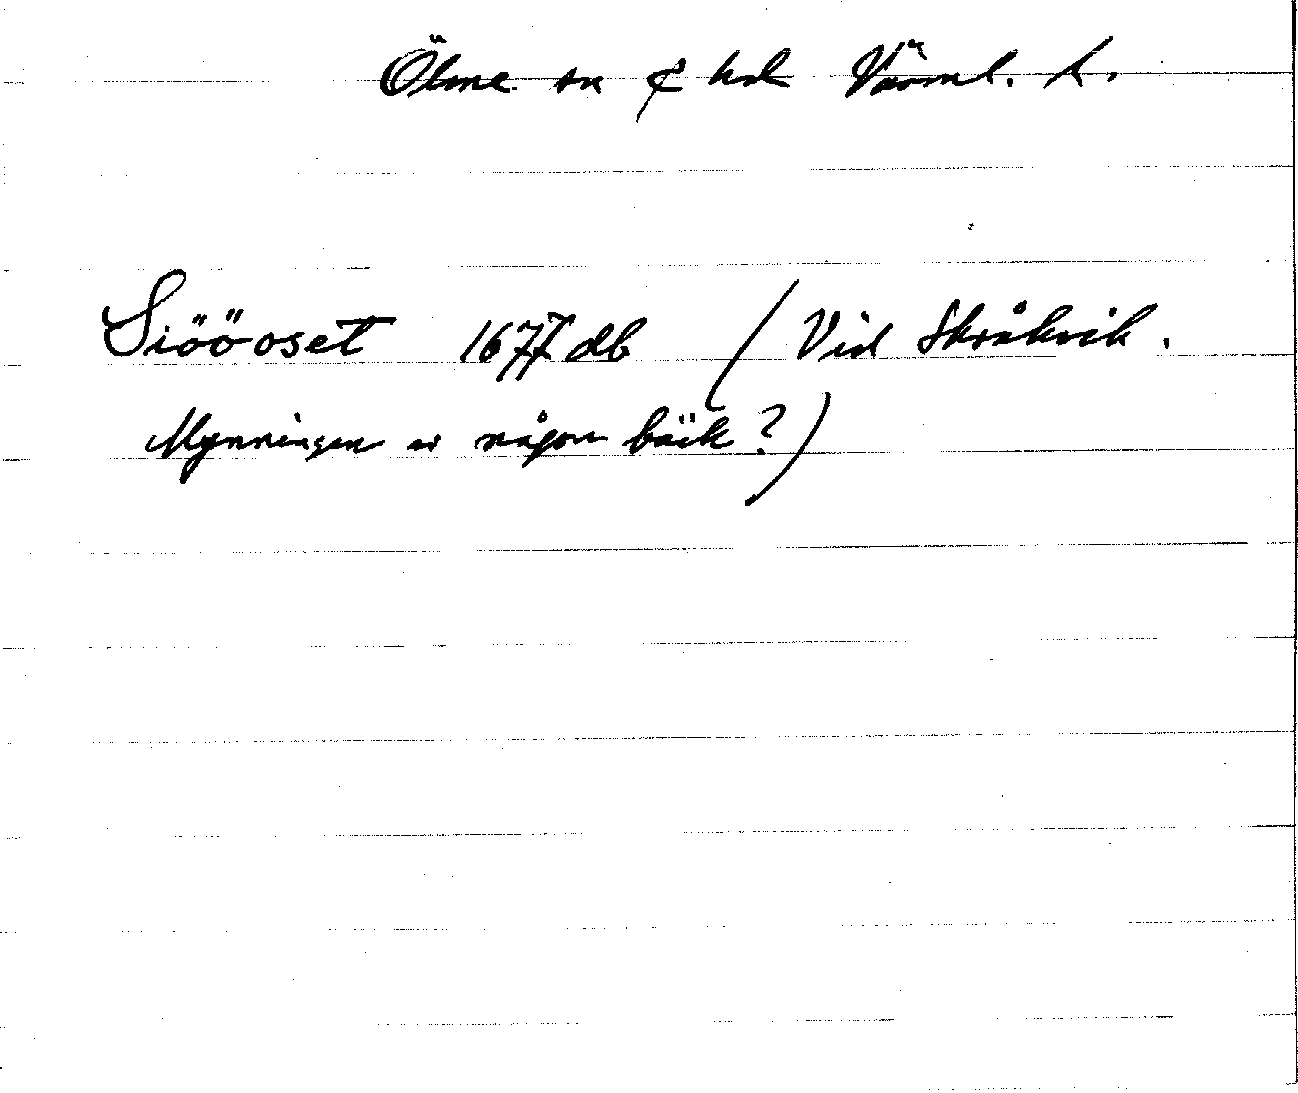 Ölme sn & hd Värml. L.
Siööoset 1677 db (Vid Skråkvik.
Mynningen av någon bäck?)